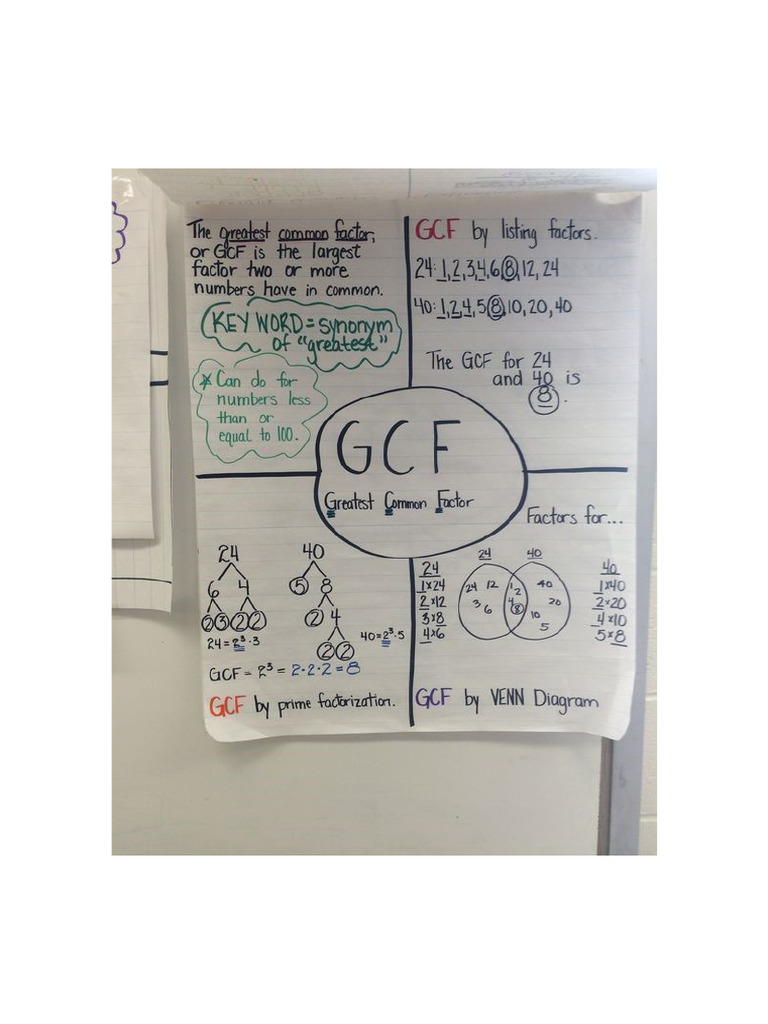 The greatest common factor,
or GCF is the largest
factor two or more
numbers have in common.
KEY WORD = synonym
of "greatest"
* Can do for
numbers less
than or
equal to 100.
GCF by listing factors.
24: 1, 2, 3, 4, 6, 8, 12, 24
40: 1, 2, 4, 5, 8, 10, 20, 40
The GCF for 24
and 40 is
8.
GCF
Greatest Common Factor
24
6 4
2 3 2 2
24 = 2³·3
40
5 8
2 4
2 2
40 = 2³·5
GCF = 2³ = 2·2·2 = 8
GCF by prime factorization.
Factors for...
24
1x24
2x12
3x8
4x6
24 40
24 12 3 6
1 2 4 8
40 20 10 5
40
1x40
2x20
4x10
5x8
GCF by VENN Diagram